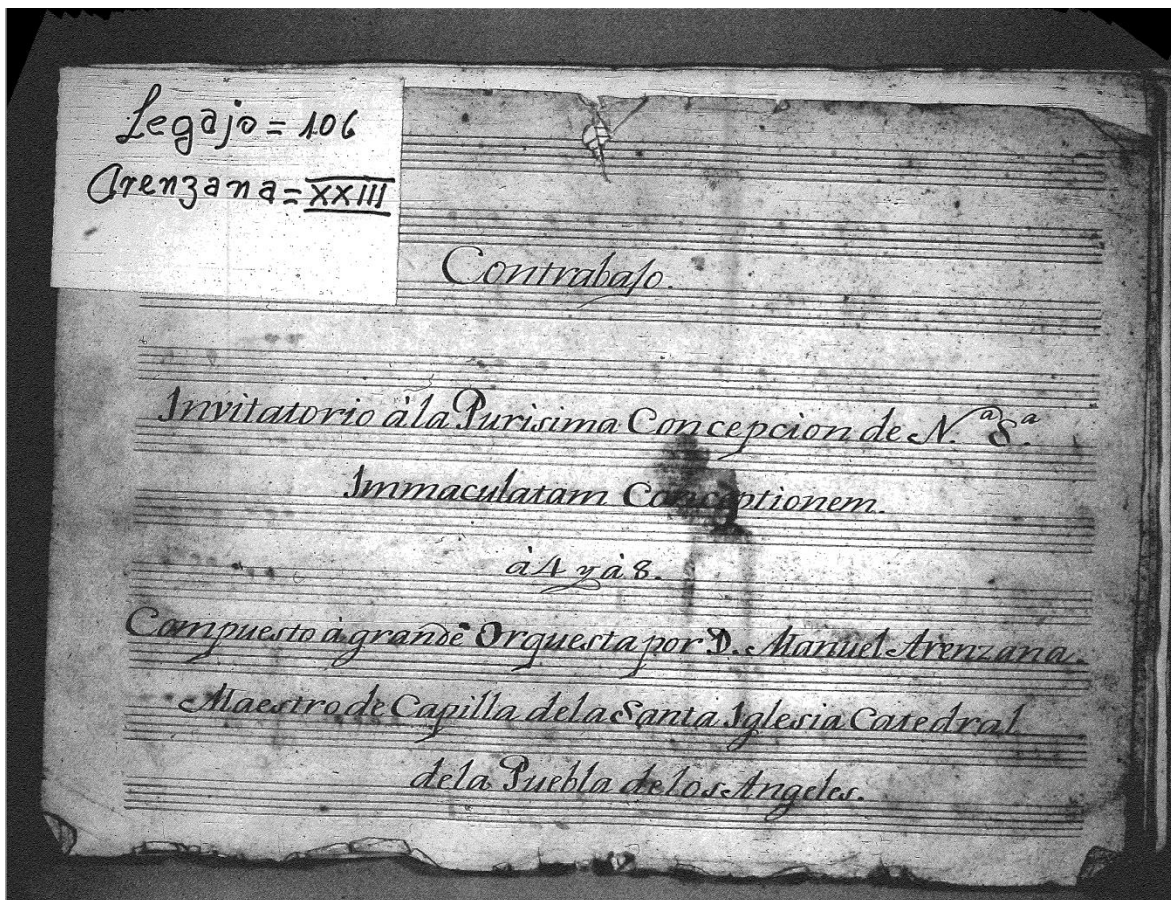 Legajo = 106
Arenzana = XXIII
Contrabajo.
Invitatorio à la Purisima Concepcion de N.ª S.ª
Immaculatam Conceptionem.
à 4 y à 8.
Compuesto à grande Orquesta por D. Manuel Arenzana.
Maestro de Capilla dela Santa Iglesia Catedral
dela Puebla delos Angeles.